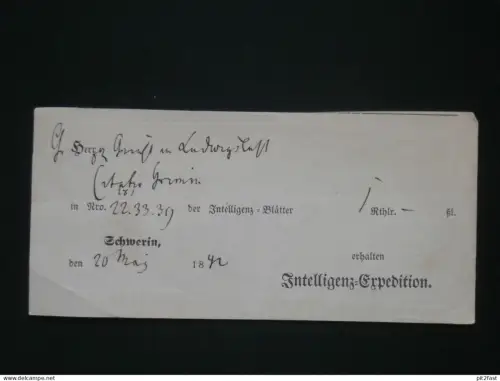 Gericht in Ludwigslust
in Nro. 22. 33. 39 der Intelligenz-Blätter 1 Rthlr. — ßl.
Schwerin,
den 20 Mai 1842
erhalten
Intelligenz-Expedition.
www.delcampe.net
pit2fast